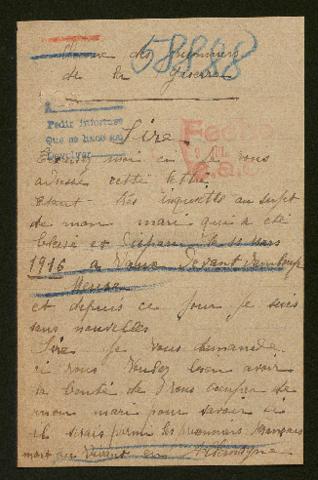 des prisonniers
58888
de la Guerre
Pedir informes
Que se hace en
Sire
moi si je vous
adresse cette lettre
étant très inquiette au sujet
de mon mari qui a été
blessé et disparu le 11 Mars
1916 a Vaux Devant Damloup
Meuse
et depuis ce jour je suis
sans nouvelles
Sire je vous demande
si vous voudez bien avoir
la bonté de vous occupez de
mon mari pour savoir si
il serais parmi les prisonniers français
mort ou vivant en Allemagne